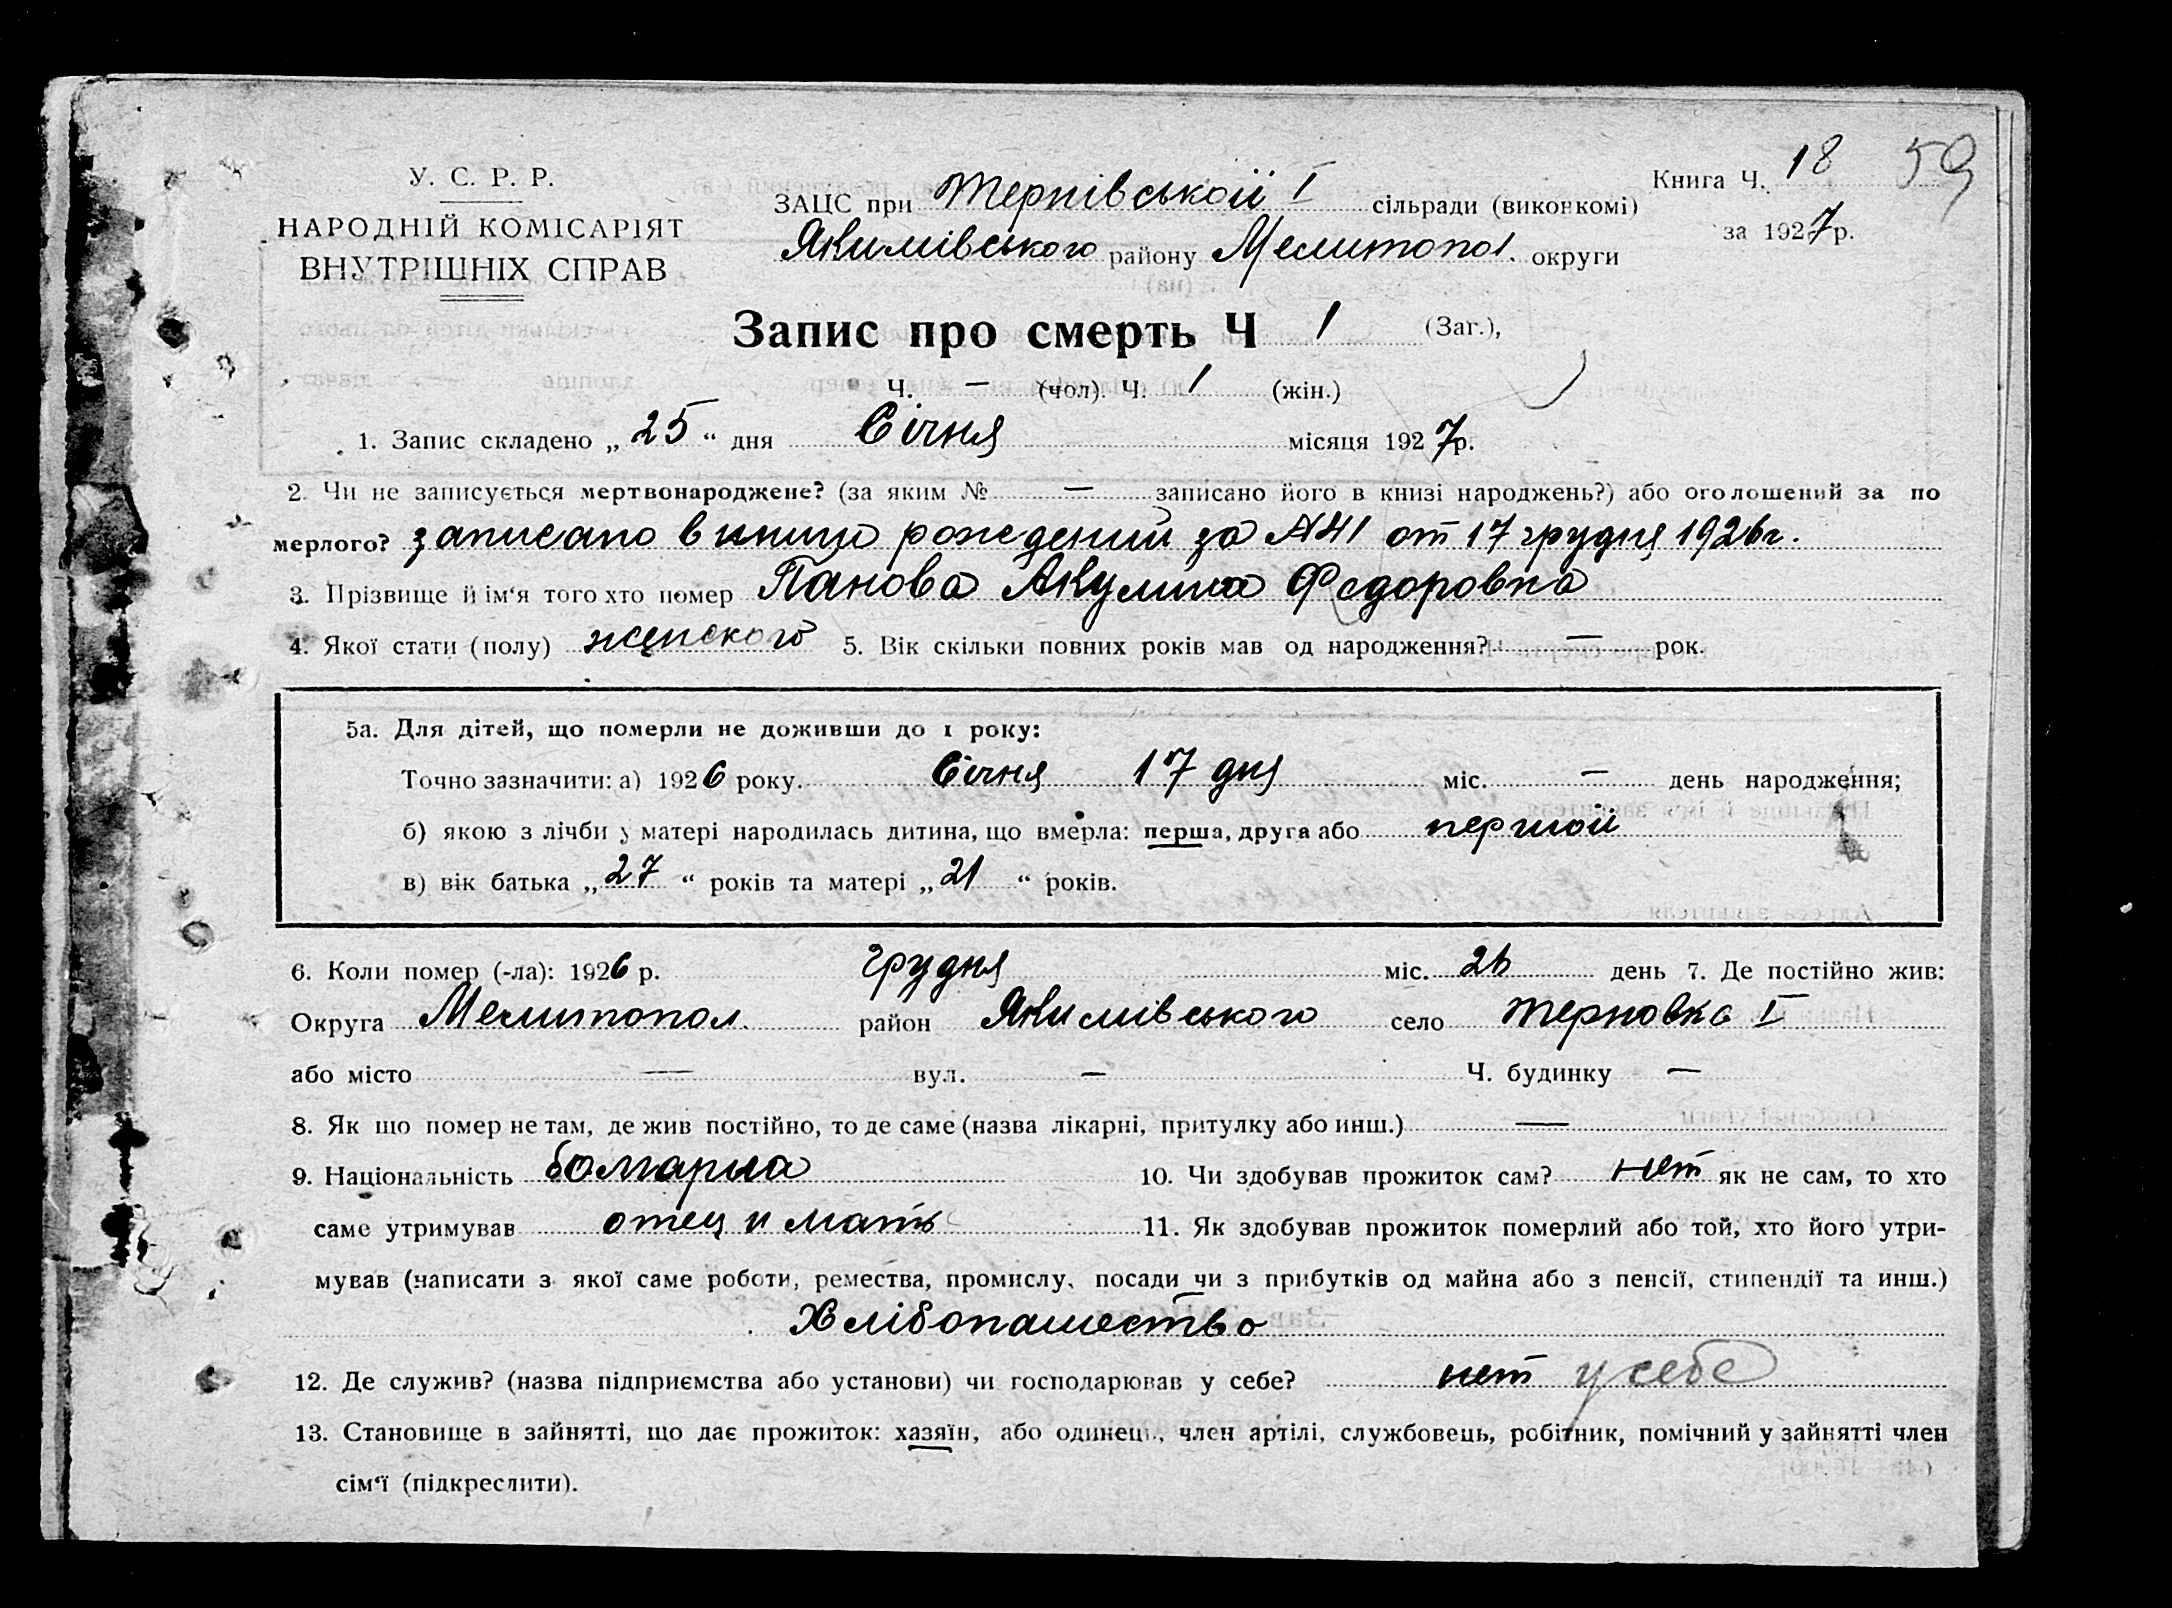 Книга Ч. 18 59
У. С. Р. Р.
НАРОДНІЙ КОМІСАРІЯТ
ВНУТРІШНІХ СПРАВ
ЗАЦС при Тернівської I сільради (виконкомі)
за 1927 р.
Якимівського району Мелитопол. округи
Запис про смерть Ч 1 (Заг.),
Ч. — (чол). Ч. 1 (жін.)
1. Запис складено „ 25 “ дня Січня місяця 1927 р.
2. Чи не записується мертвонароджене? (за яким № — записано його в книзі народжень?) або оголошений за по
мерлого? записано в книгу рождений за №41 от 17 грудня 1926 г.
3. Прізвище й ім‘я того хто помер Панова Акулина Федоровна
4. Якої стати (полу) женского 5. Вік скільки повних років мав од народження? — рок.
5а. Для дітей, що померли не доживши до 1 року:
Точно зазначити: а) 1926 року. Січня 17 дня міс. — день народження;
б) якою з лічби у матері народилась дитина, що вмерла: перша, друга або першой
в) вік батька „ 27 “ років та матері „ 21 “ років.
6. Коли помер (-ла): 1926 р. грудня міс. 26 день 7. Де постійно жив:
Округа Мелитопол. район Якимівського село Терновка I
або місто — вул. — Ч. будинку —
8. Як що помер не там, де жив постійно, то де саме (назва лікарні, притулку або инш.) —
9. Національність болгарка 10. Чи здобував прожиток сам? нет як не сам, то хто
саме утримував отец и мать 11. Як здобував прожиток померлий або той, хто його утри-
мував (написати з якої саме роботи, ремества, промислу, посади чи з прибутків од майна або з пенсії, стипендії та инш.)
Хлібопашество
12. Де служив? (назва підприємства або установи) чи господарював у себе? нет у себе
13. Становище в зайнятті, що дає прожиток: хазяїн, або одинець, член артілі, службовець, робітник, помічний у зайнятті член
сім‘ї (підкреслити).